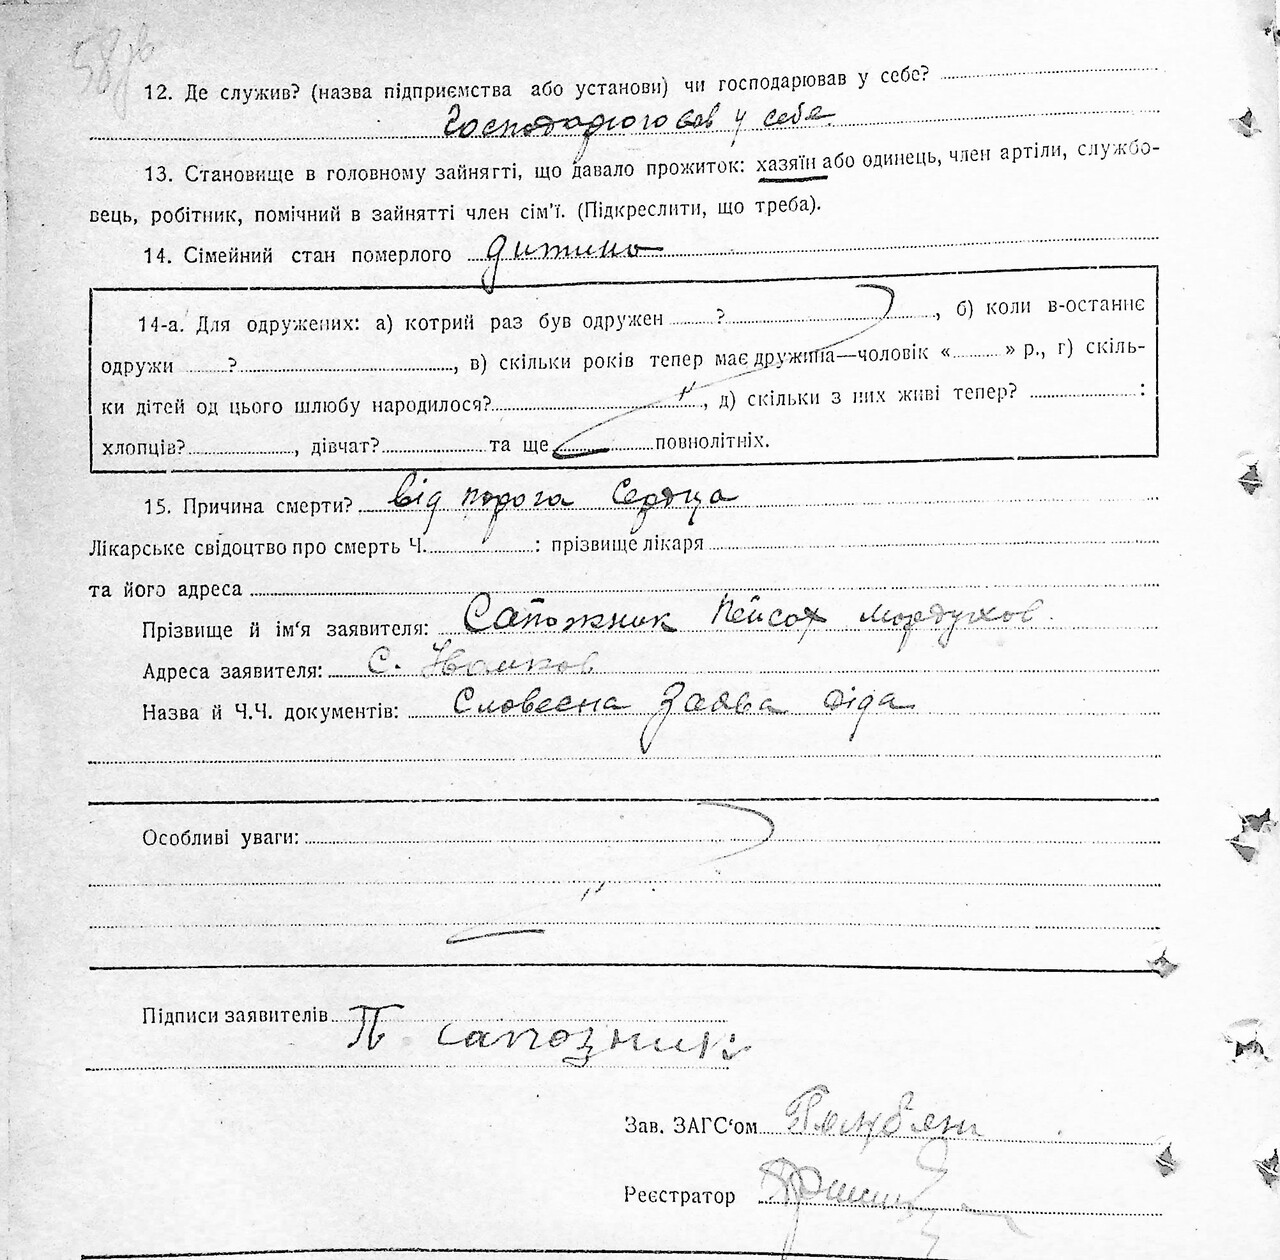 58зв
12. Де служив? (назва підприємства або установи) чи господарював у себе?
Господарював у себе
13. Становище в головному зайнятті, що давало прожиток: хазяїн або одинець, член артіли, службо-
вець, робітник, помічний в зайнятті член сім'ї. (Підкреслити, що треба).
14. Сімейний стан померлого дитина
14-а. Для одружених: а) котрий раз був одружен ?, б) коли в-останнє
одружи ?, в) скільки років тепер має дружина—чоловік « » р., г) скіль-
ки дітей од цього шлюбу народилося?, д) скільки з них живі тепер? :
хлопців?, дівчат? та ще повнолітніх.
15. Причина смерти? від порога сердца
Лікарське свідоцтво про смерть Ч. : прізвище лікаря
та його адреса
Прізвище й ім'я заявителя: Сапожник Пейсох Мордухов
Адреса заявителя: С.
Назва й Ч.Ч. документів: Словесна заява діда
Особливі уваги:
Підписи заявителів П. сапозник
Зав. ЗАГС'ом
Реєстратор